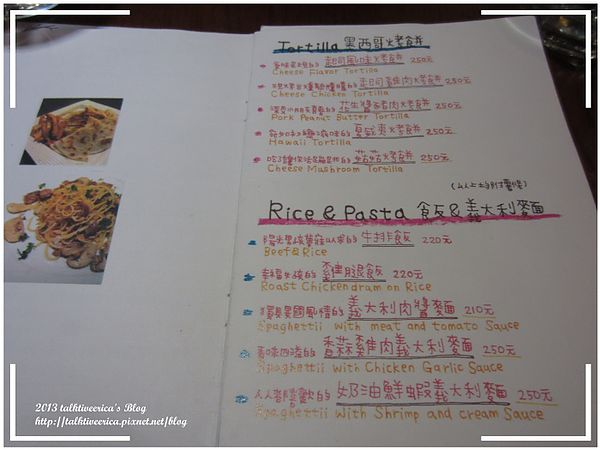 Tortilla 墨西哥烤餅
起司風味烤餅 250元
Cheese Flavor Tortilla
起司雞肉烤餅 250元
Cheese Chicken Tortilla
花生醬豬肉烤餅 250元
Pork Peanut Butter Tortilla
夏威夷烤餅 250元
Hawaii Tortilla
菇菇烤餅 250元
Cheese Mushroom Tortilla
(以上均附薯條)
Rice & Pasta 飯&義大利麵
牛排飯 220元
Beef&Rice
幸福女孩的 雞腿飯 220元
Roast Chicken dram on Rice
獨具異國風情的 義大利肉醬麵 210元
Spaghettii with meat and tomato Sauce
香味四溢的 香蒜雞肉義大利麵 250元
Spaghettii with Chicken Garlic Sauce
人人都喜歡的 奶油鮮蝦義大利麵 250元
Spaghettii with Shrimp and cream Sauce
2013 talktiveerica's Blog
http://talktiveerica.pixnet.net/blog